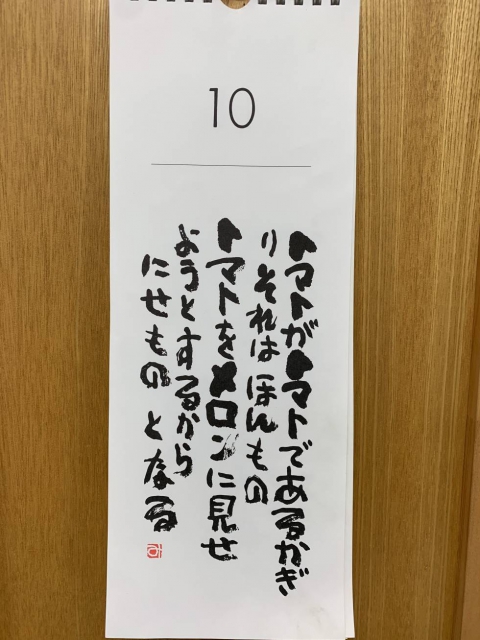 10
トマトがトマトであるかぎ
りそれはほんもの
トマトをメロンに見せ
ようとするから
にせものとなる